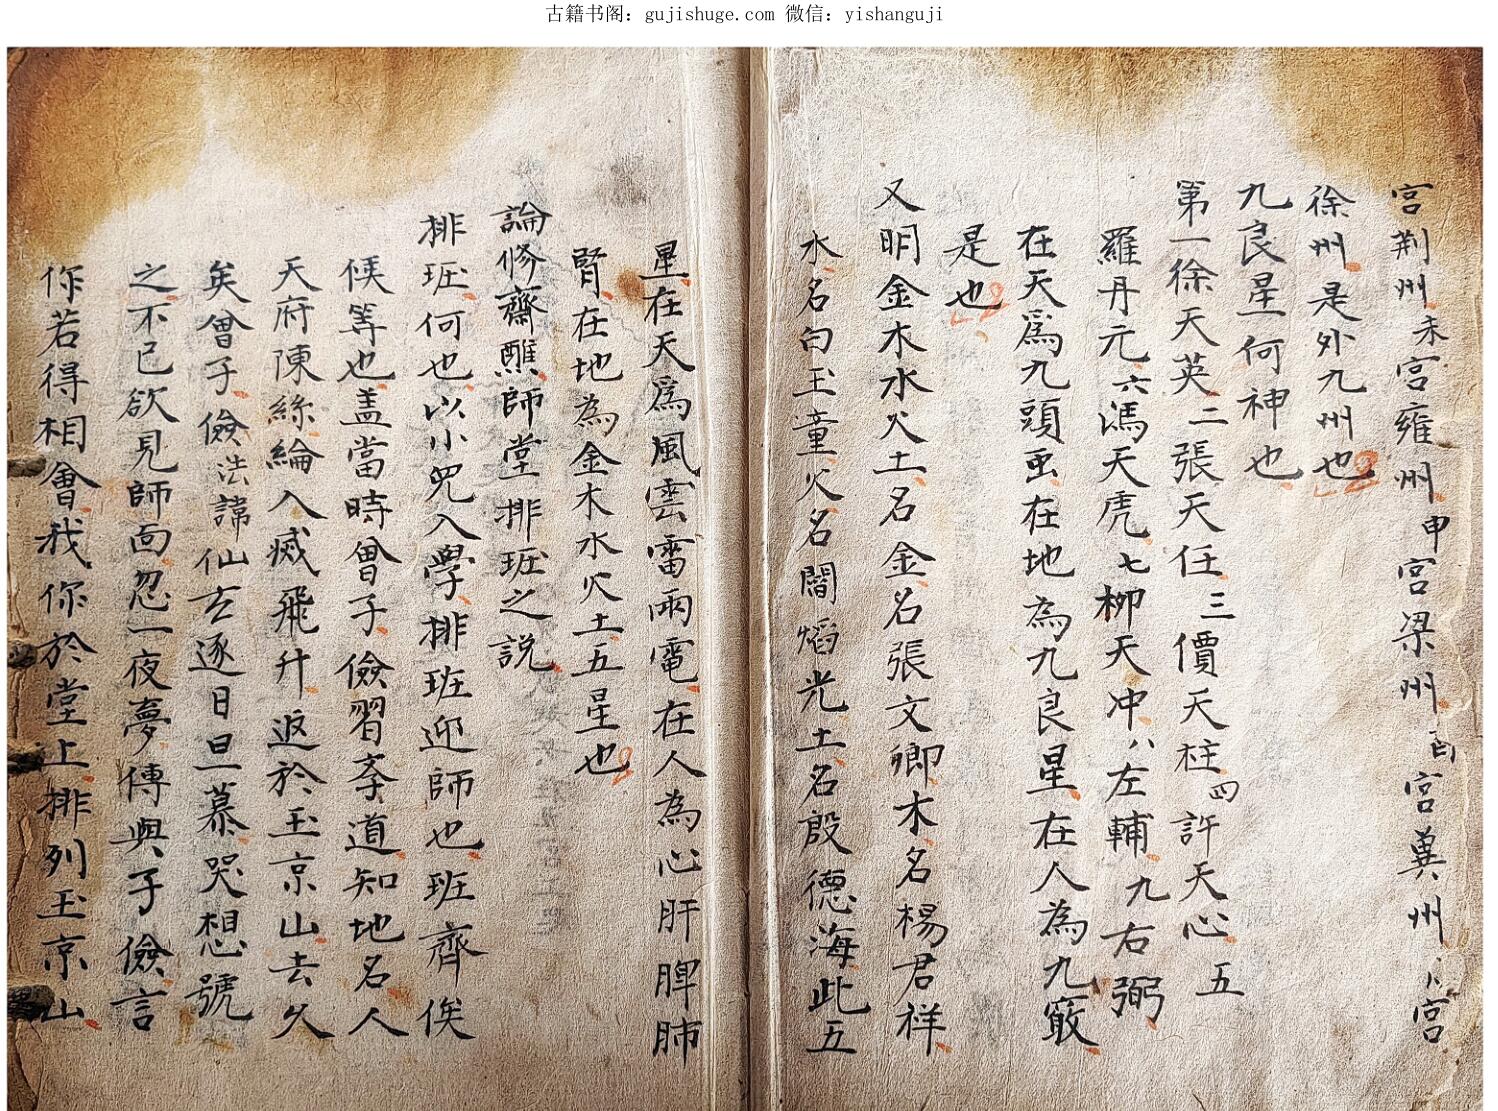 古籍书阁：gujishuge.com 微信：yishanguji
宮荆州未宮雍州申宮梁州酉宮冀州宮
徐州是外九州也
九良星何神也
第一徐天英二張天任三價天柱四許天心五
羅丹元六馮天虎七柳天冲八左輔九右弼
在天爲九頭在地為九良星在人為九竅
是也
又明金木水火土名金名張文卿木名楊君祥
水名白玉童火名闘熖光土名殷德海此五
星在天爲風雲雷雨電在人為心肝脾肺
腎在地為金木水火土五星也
論修齋醮師堂排班之説
排班何也以小兒入學排班迎師也班齊俟
候等也盖當時曾子儉習孝道知地名人
天府陳絲綸入滅飛升返於玉京山去久
矣曾子儉法諱仙去逐日旦慕哭想號
之不已欲見師面忽一夜夢傳與子儉言
你若得相會我你於堂上排列玉京山